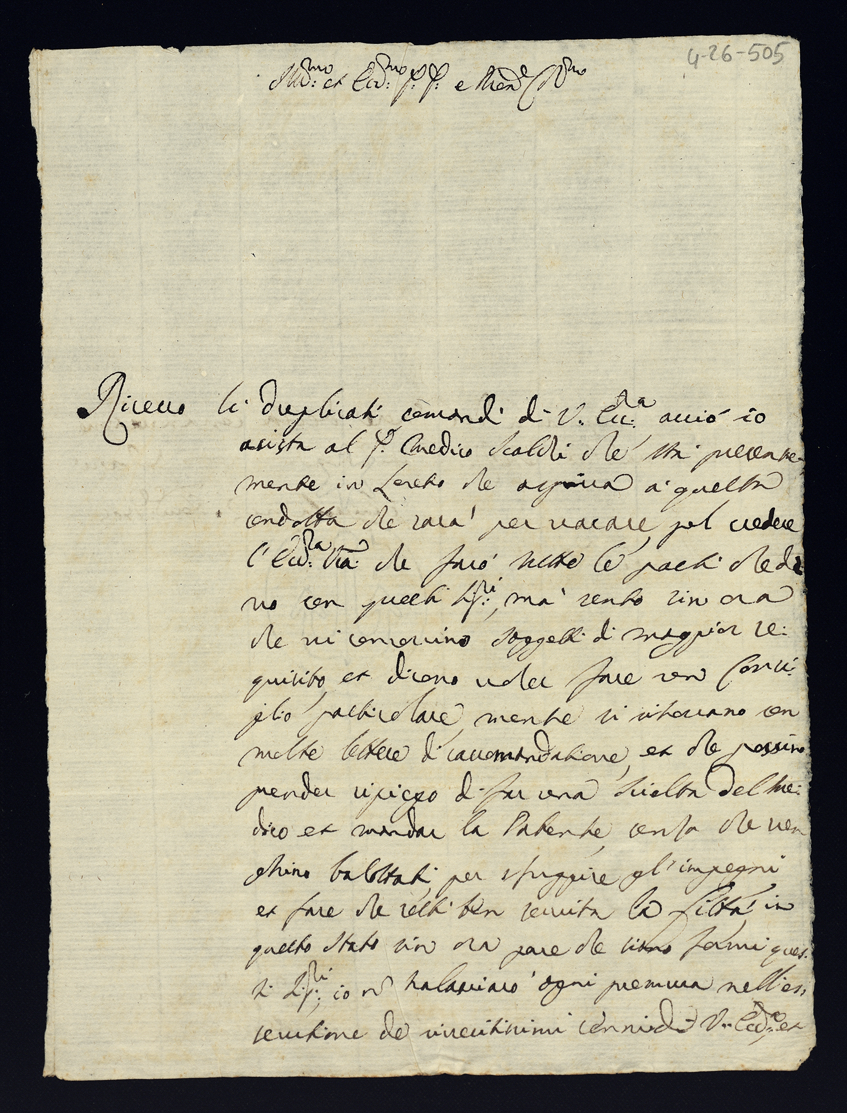 4-26-505
Ill.mo et Ecc.mo S.r P. e
Riceuo li duplicati comandi di V. Ecc.a acciò io
asista al S.r Medico Scaldi che stà presente-
mente in Loreto che aspira à questa
condotta che sarà per uacare, può credere
l'Ecc.za V.ra che farò tutte le parti che de
uo con questi Sig.ri, mà sento sin ora
che ui concorrino soggetti di maggior re:
quisito, et dicono uoler fare un Consi:
glio particolare mentre si ritrouano con
molte lettere di raccomandatione, et che possino
prender ripiego di far una scielta del Me:
dico et mandar la Patente, senza che uen
ghino ballottati, per sfuggire gl'impegni
et fare che resti ben seruita la Città, in
questo stato sin ora pare che siano fermi ques:
ti Sig.ri, io n tralasciarò ogni premura nell'es:
secutione de riueritissimi cenni di V. Ecc.a, et